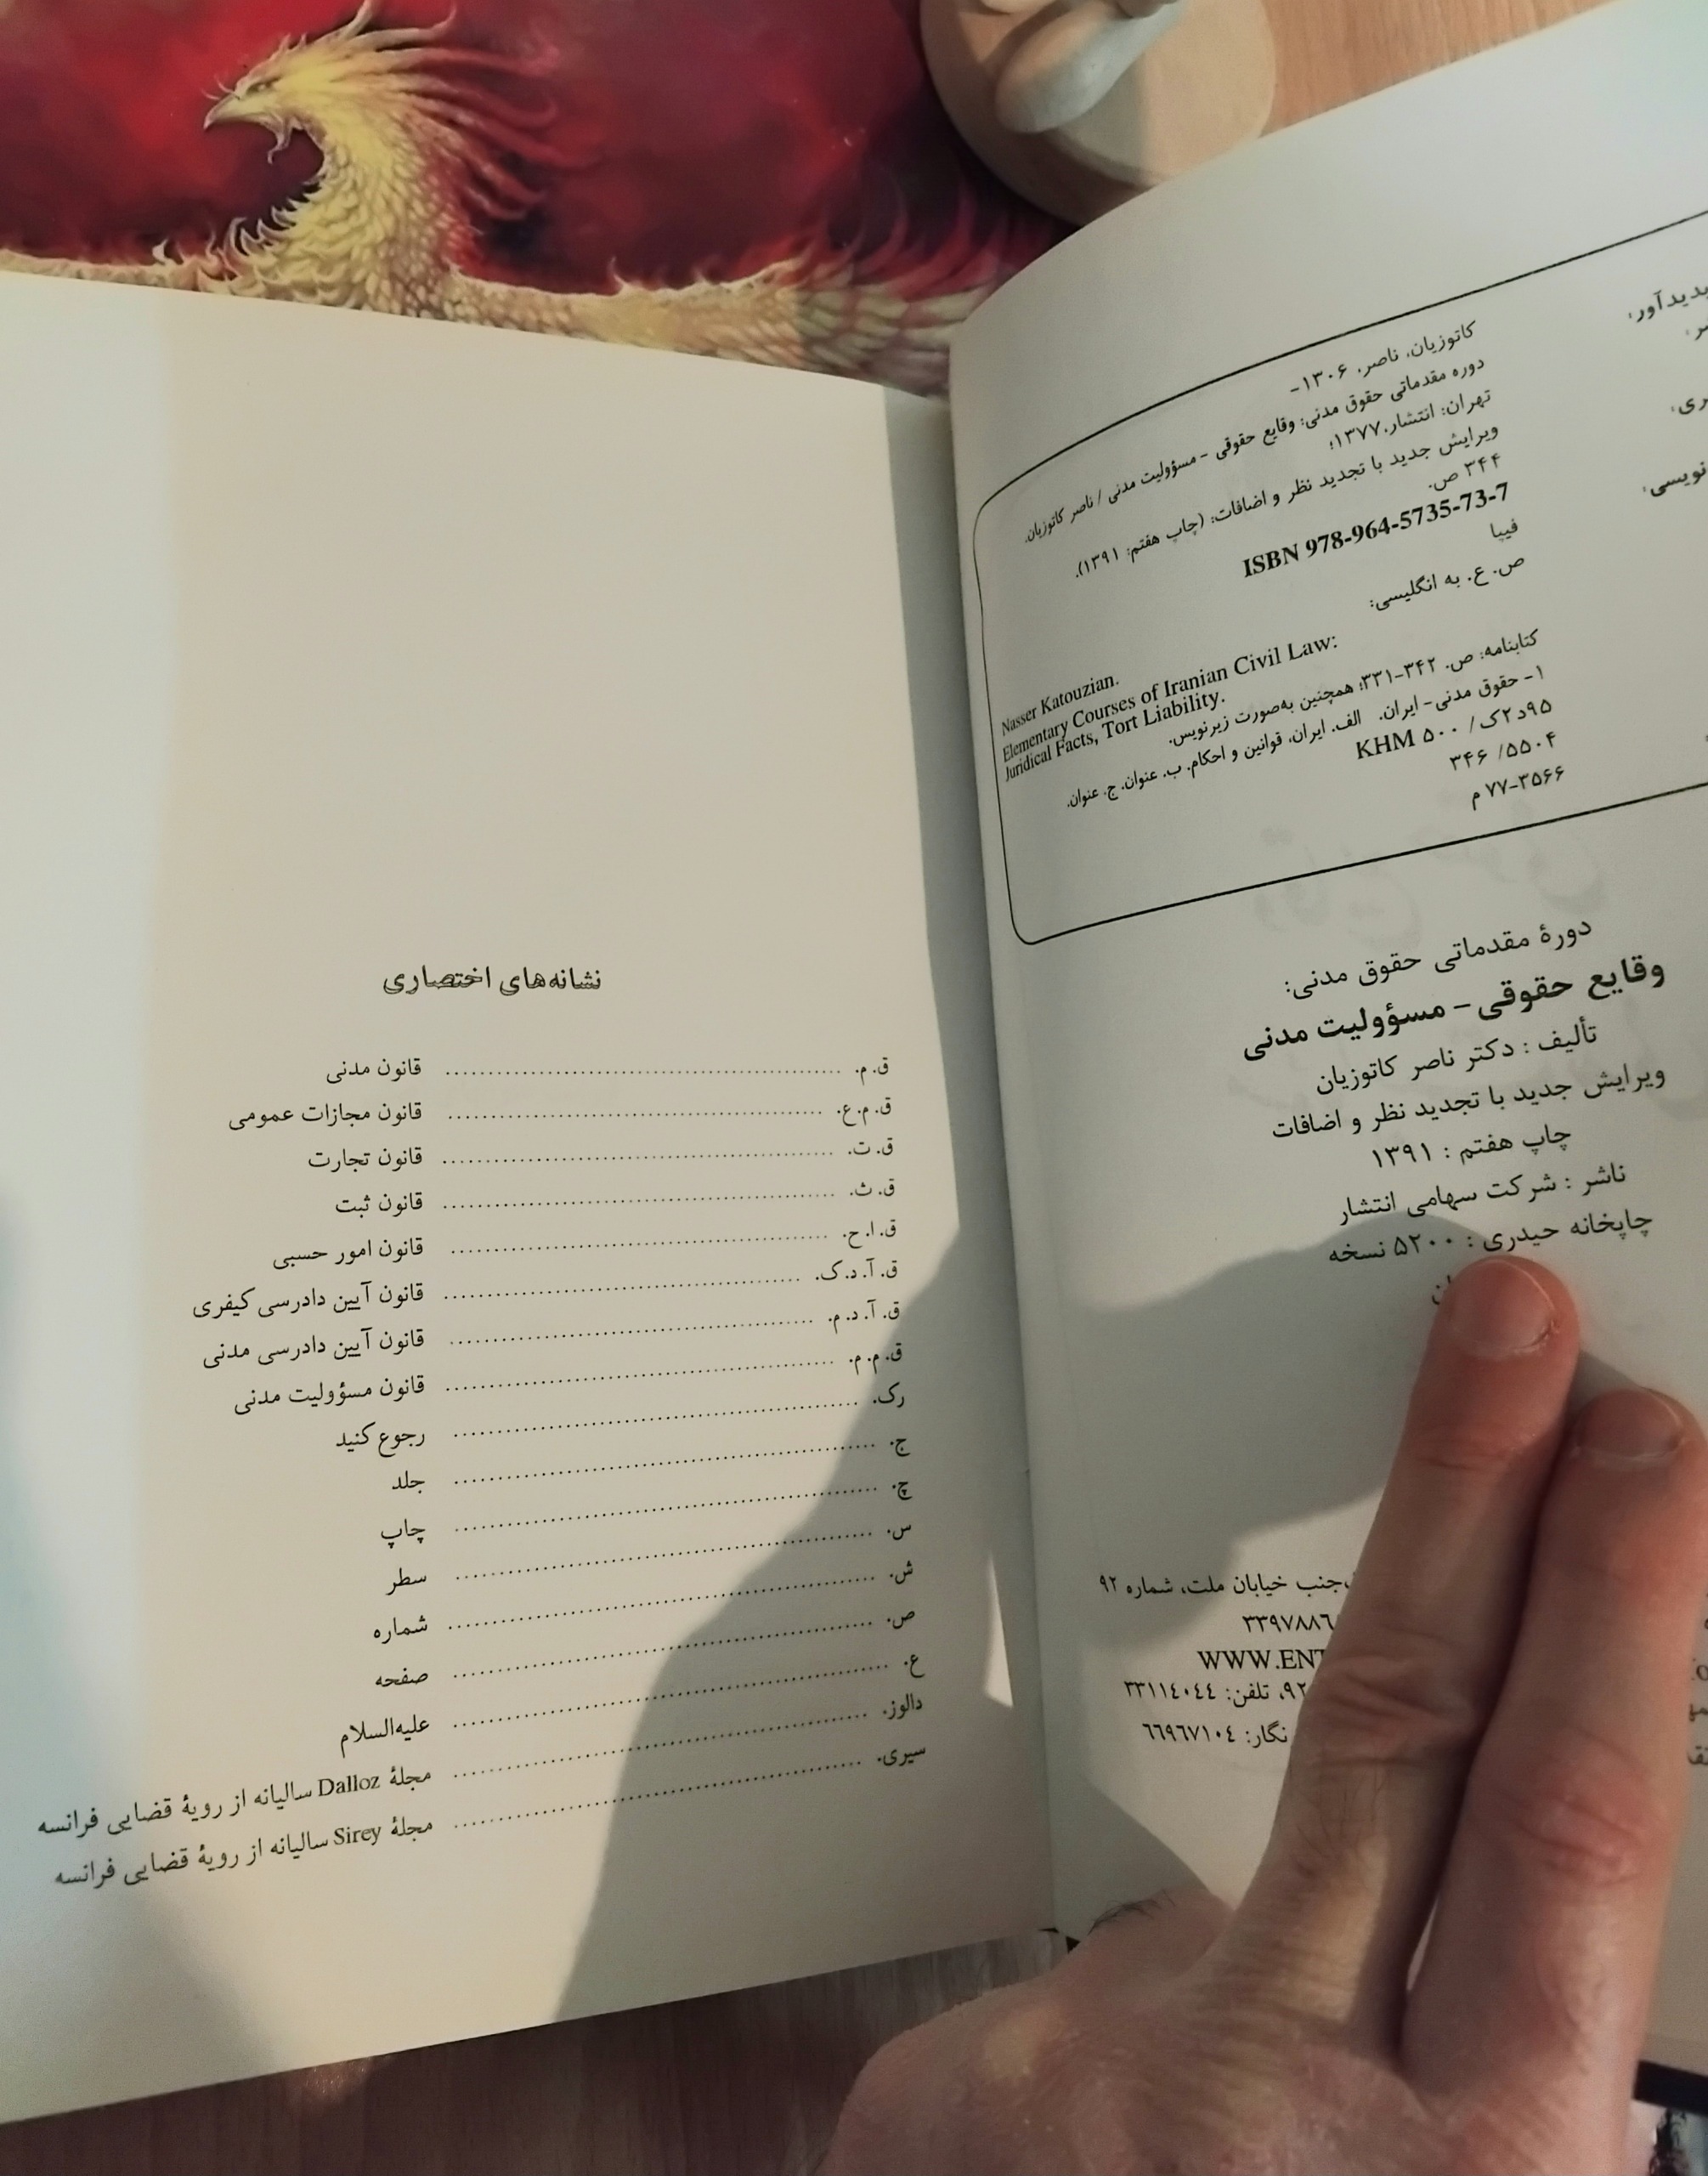 کاتوزیان، ناصر، ۱۳۰۶-
دوره مقدماتی حقوق مدنی: وقایع حقوقی - مسؤولیت مدنی / ناصر کاتوزیان.
تهران: انتشار،۱۳۷۷؛
ویرایش جدید با تجدید نظر و اضافات: (چاپ هفتم: ۱۳۹۱).
۳۴۴ ص.
ISBN 978-964-5735-73-7
فیپا
ص. ع. به انگلیسی:
Nasser Katouzian.
Elementary Courses of Iranian Civil Law:
Juridical Facts, Tort Liability.
کتابنامه: ص. ۳۴۲-۳۳۱؛ همچنین به‌صورت زیرنویس.
۱- حقوق مدنی- ایران. الف. ایران، قوانین و احکام. ب. عنوان. ج. عنوان.
۹۵د۲ک/ ۵۰۰ KHM
۳۴۶ /۵۵۰۴
۷۷-۳۵۶۶ م
دورهٔ مقدماتی حقوق مدنی:
وقایع حقوقی - مسؤولیت مدنی
تألیف : دکتر ناصر کاتوزیان
ویرایش جدید با تجدید نظر و اضافات
چاپ هفتم : ۱۳۹۱
ناشر : شرکت سهامی انتشار
چاپخانه حیدری : ۵۲۰۰ نسخه
جنب خیابان ملت، شماره ۹۲
۳۳۹۷۸۸۶
WWW.ENT
۹۲، تلفن: ۳۳۱۱٤۰٤٤
نگار: ٦٦٩٦٧١٠٤
نشانه‌های اختصاری
ق. م. .......... قانون مدنی
ق.م.ع. .......... قانون مجازات عمومی
ق. ت. .......... قانون تجارت
ق. ث. .......... قانون ثبت
ق. ا. ح. .......... قانون امور حسبی
ق. آ. د. ک. .......... قانون آیین دادرسی کیفری
ق. آ. د. م. .......... قانون آیین دادرسی مدنی
ق. م. م. .......... قانون مسؤولیت مدنی
رک. .......... رجوع کنید
ج. .......... جلد
چ. .......... چاپ
س. .......... سطر
ش. .......... شماره
ص. .......... صفحه
ع. .......... علیه‌السلام
دالوز. .......... مجلهٔ Dalloz سالیانه از رویهٔ قضایی فرانسه
سیری. .......... مجلهٔ Sirey سالیانه از رویهٔ قضایی فرانسه